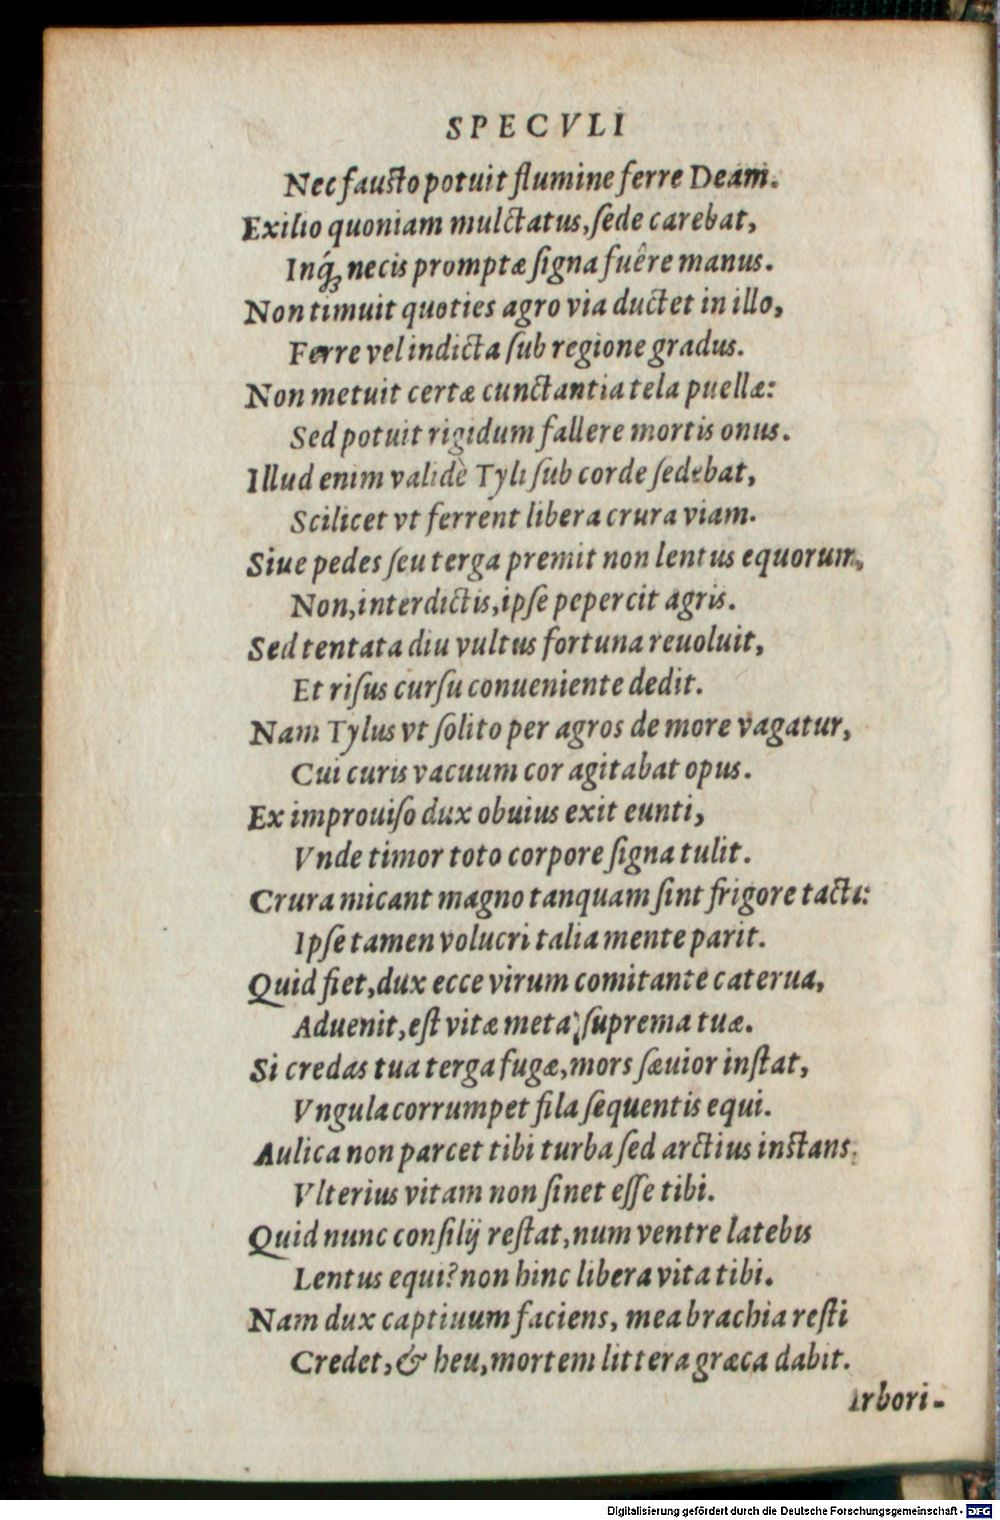 SPECVLI
Nec fausto potuit flumine ferre Deam.
Exilio quoniam mulctatus, sede carebat,
Inq́; necis promptæ signa fuêre manus.
Non timuit quoties agro via ductet in illo,
Ferre vel indicta sub regione gradus.
Non metuit certæ cunctantia tela puellæ:
Sed potuit rigidum fallere mortis onus.
Illud enim validè Tyli sub corde sedebat,
Scilicet vt ferrent libera crura viam.
Siue pedes seu terga premit non lentus equorum,
Non, interdictis, ipse pepercit agris.
Sed tentata diu vultus fortuna reuoluit,
Et risus cursu conueniente dedit.
Nam Tylus vt solito per agros de more vagatur,
Cui curis vacuum cor agitabat opus.
Ex improuiso dux obuius exit eunti,
Vnde timor toto corpore signa tulit.
Crura micant magno tanquam sint frigore tacta:
Ipse tamen volucri talia mente parit.
Quid fiet, dux ecce virum comitante caterua,
Aduenit, est vitæ meta suprema tuæ.
Si credas tua terga fugæ, mors sæuior instat,
Vngula corrumpet fila sequentis equi.
Aulica non parcet tibi turba sed arctius instans.
Vlterius vitam non sinet esse tibi.
Quid nunc consilij restat, num ventre latebis
Lentus equi? non hinc libera vita tibi.
Nam dux captiuum faciens, mea brachia resti
Credet, & heu, mortem littera græca dabit.
Arbori-
Digitalisierung gefördert durch die Deutsche Forschungsgemeinschaft - DFG